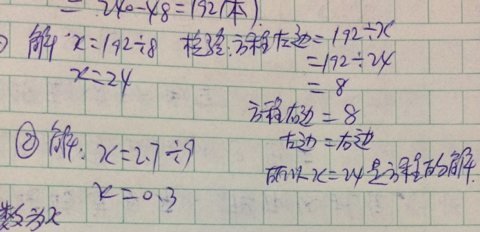 = 240-48=192(本).
解:x=192÷8 检验:方程左边=192÷x
x=24 =192÷24
=8
方程右边=8
左边=右边
②解:x=2.7÷9 所以x=24是方程的解.
x=0.3
数为x